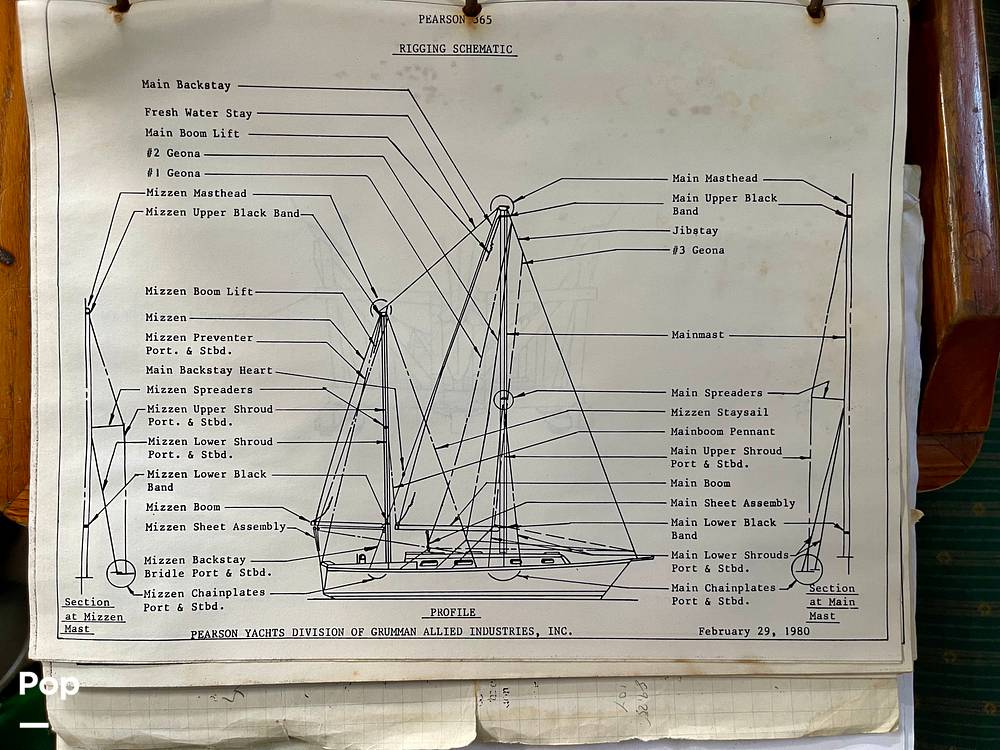 PEARSON 365
RIGGING SCHEMATIC
Main Backstay
Fresh Water Stay
Main Boom Lift
#2 Geona
#1 Geona
Mizzen Masthead
Mizzen Upper Black Band
Mizzen Boom Lift
Mizzen
Mizzen Preventer
Port. & Stbd.
Main Backstay Heart
Mizzen Spreaders
Mizzen Upper Shroud
Port. & Stbd.
Mizzen Lower Shroud
Port. & Stbd.
Mizzen Lower Black
Band
Mizzen Boom
Mizzen Sheet Assembly
Mizzen Backstay
Bridle Port & Stbd.
Mizzen Chainplates
Port & Stbd.
Section
at Mizzen
Mast
Main Masthead
Main Upper Black
Band
Jibstay
#3 Geona
Mainmast
Main Spreaders
Mizzen Staysail
Mainboom Pennant
Main Upper Shroud
Port & Stbd.
Main Boom
Main Sheet Assembly
Main Lower Black
Band
Main Lower Shrouds
Port & Stbd.
Main Chainplates
Port & Stbd.
Section
at Main
Mast
PROFILE
PEARSON YACHTS DIVISION OF GRUMMAN ALLIED INDUSTRIES, INC.
February 29, 1980
Pop